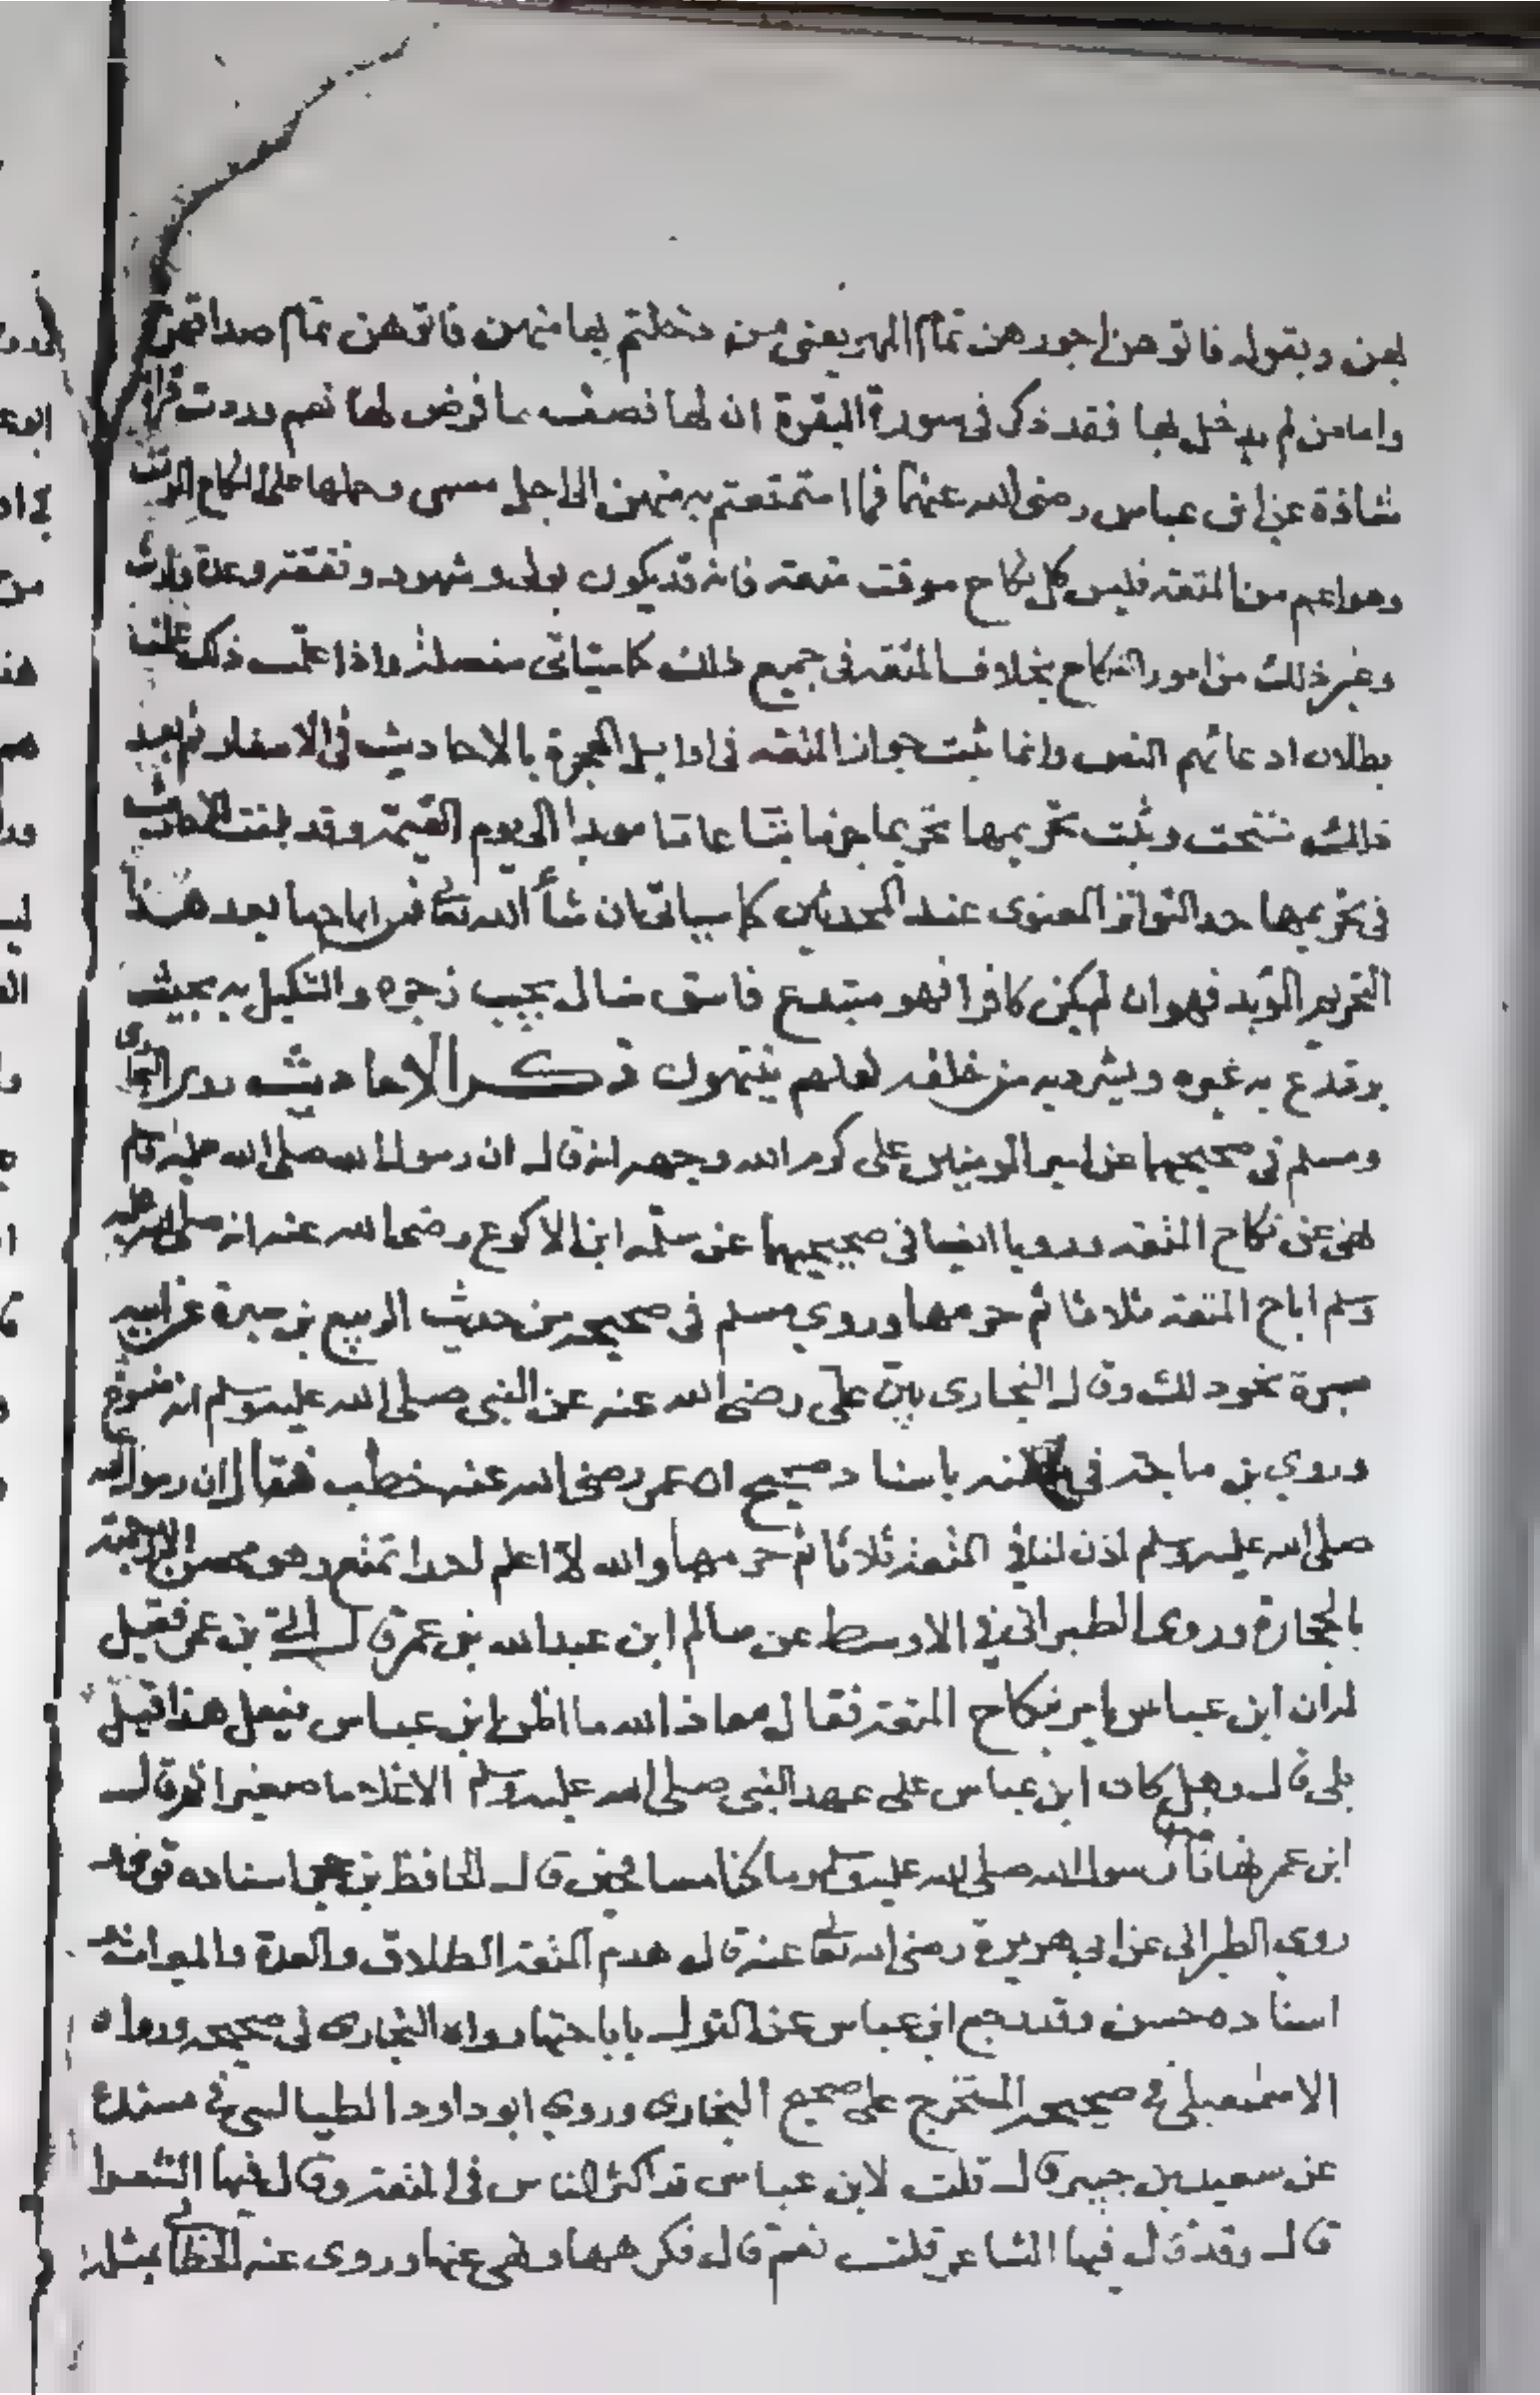 لهن وبقوله فاتوهن اجورهن تمام المهر يعنى من دخلتم بها منهن فاتوهن تمام صداقهن
واما من لم يدخل بها فقد ذكر فى سورة البقرة ان لها نصف ما فرض لها نعم وردت قراة
شاذة عن ابن عباس رضى الله عنهما فما استمتعتم به منهن الى اجل مسمى وحملها على النكاح الموقت
وهو اعم من المتعه فليس كل نكاح موقت متعه فانه قد يكون بولى وشهود ونفقة وعدة وارث
وغير ذلك من امور النكاح بخلاف المتعه فى جميع ذلك كما سيتاتى مفصلة واذا علمت ذلك علمت
بطلان ادعائهم النص وانما ثبت جواز المتعه فى اوايل الهجرة بالاحاديث فى الاسفار ثم بعد
ذلك نسخت وثبت تحريمها تحريما جزما بتا عاما موبدا الى يوم القيمة وقد بلغت الاحاديث
فى تحريمها حد التواتر المعنوى عند المحدثين كما سياتى ان شأ الله تعالى فمن اباحها بعد هذا
التحريم المؤبد فهو ان لم يكن كافرا فهو مبتدع فاسق ضال يجب زجره والتنكيل به بحيث
يرتدع به غيره ويشرد به من خلفه لعلهم ينتهون ذكر الاحاديث روى البخارى
ومسلم فى صحيحيهما عن امير المومنين على كرم الله وجهه انه قال ان رسول الله صلى الله عليه وسلم
نهى عن نكاح المتعه ورويا ايضا فى صحيحيهما عن سلمه ابن الاكوع رضى الله عنه انه صلى الله عليه
وسلم اباح المتعه ثلاثا ثم حرمها وروي مسلم فى صحيحه من حديث الربيع بن سبرة عن ابيه
سبرة نحو ذلك وقال البخارى بين على رضى الله عنه عن النبى صلى الله عليه وسلم انه منسوخ
وروي بن ماجه في سننه باسناد صحيح ان عمر رضى الله عنه خطب فقال ان رسول الله
صلى الله عليه وسلم اذن لنا في المتعه ثلاثا ثم حرمها والله لا اعلم احدا تمتع وهو محصن الا رجمته
بالحجارة وروى الطبرانى في الاوسط عن سالم ابن عبدالله بن عمر قال اتى بن عمر فقيل
له ان ابن عباس يامر بنكاح المتعه فقال معاذ الله ما اظن ابن عباس يفعل هذا قيل
بلى قال وهل كان ابن عباس على عهد النبى صلى الله عليه وسلم الا غلاما صغيرا ثم قال
ابن عمر نهانا رسول الله صلى الله عليه وسلم وما كنا مسافحين قال الحافظ بن حجر اسناده قوى
روي الطبرانى عن ابى هريرة رضى الله تعالى عنه قال هدم المتعه الطلاق والعدة والميراث
اسناده حسن وقد رجع ابن عباس عن القول باباحتها رواه البخارى فى صحيحه ورواه
الاسمعيلى فى صحيحه المستخرج على صحيح البخارى وروي ابو داود الطيالسى فى مسنده
عن سعيد بن جبير قال قلت لابن عباس قد اكثر الناس فى المتعه وقال فيها الشعرا
قال وقد قال فيها الشاعر قلت نعم قال فكرهها ونهى عنها وروى عنه الخطابى بمثله